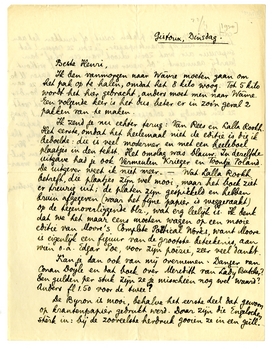 Gistoux, Dinsdag.
Beste Henri,
Ik ben vanmorgen naar Wavre moeten gaan om
het pak op te halen, omdat het 8 kilo woog. Tot 5 kilo
wordt het hier gebracht, anders moet men naar Wavre.
Een volgende keer is het dus beter er in zoo'n geval 2
pakken van te maken.
Ik zend je nu echter terug: Van Rees en Lalla Rookh.
Het eerste, omdat het heelemaal niet de editie is die ik
bedoelde: die is veel moderner en met een heeleboel
plaatjes in den tekst. Het omslag was blauw. In dezelfde
uitgave had je ook Vermeulen Krieger en Wonja Poland.
De uitgever weet ik niet meer. — Wat Lalla Rookh
betreft, de plaatjes zijn wel mooi, maar het boek ziet
er treurig uit: de platen zijn gespikkeld en hebben
bruin afgegeven (waar het fijne papier is weggeraakt)
op de tegenoverliggende blz. wat erg leelijk is. Ik denk
dat we het maar eens moeten vragen op een mooie
editie van Moore's Complete Poetical Works, want Moore
is eigenlijk een figuur van de grootste beteekenis, aan
wien o.a. Edgar Poe, voor zijn poëzie, zeer veel dankt.
Kan je dan ook van mij overnemen: Danger van
Conan Doyle en dat boek over Meredith van Lady Butcher?
Een gulden per stuk zijn ze je misschien nog wel waard?
Anders ƒ 1.50 voor de twee?
De Byron is mooi, behalve het eerste deel dat gewoon
op krantenpapier gedrukt werd. Daar zijn die Engelsche
sterk in: bij de zooveelste herdruk gooien ze in een stijl